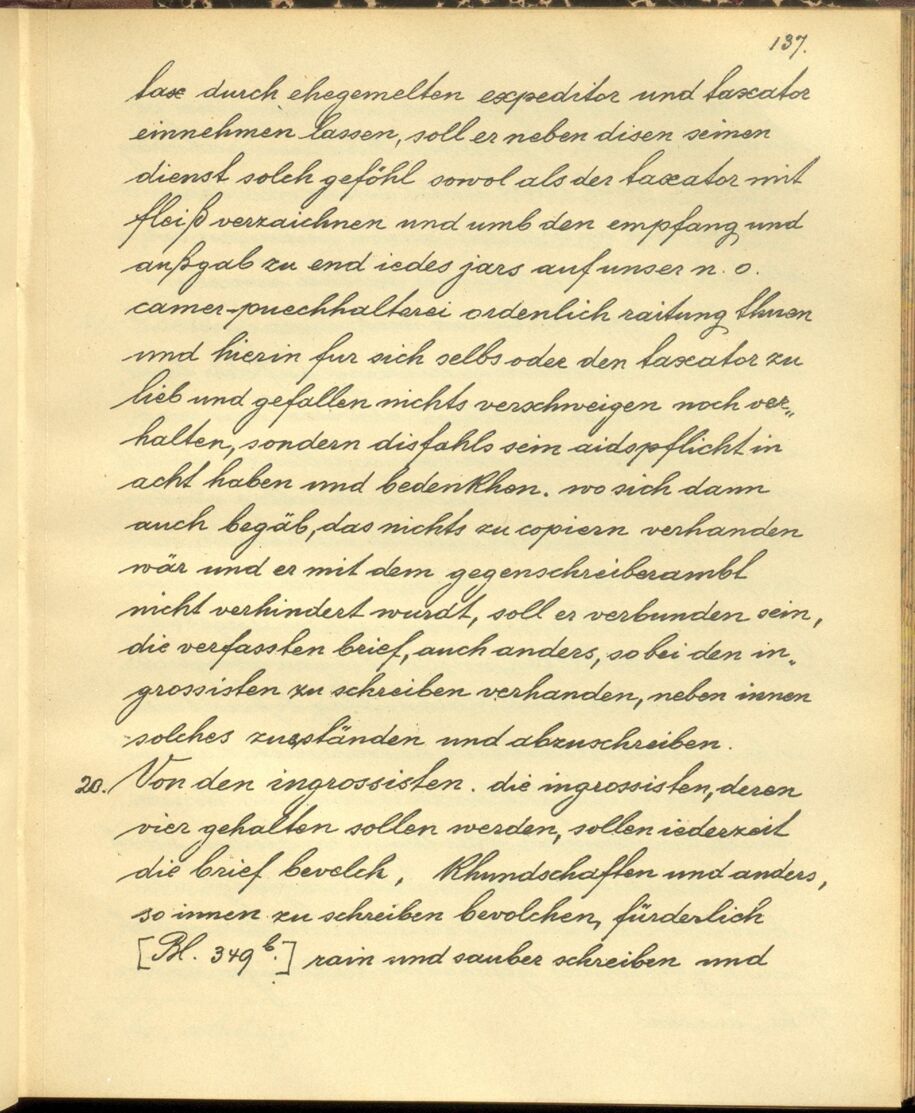 137.
tax durch ehegemelten expeditor und taxator
einnehmen lassen, soll er neben disen seinen
dienst solch geföhl sowol als der taxator mit
fleiß verzaichnen und umb den empfang und
außgab zu end iedes jars auf unser n. o.
camer-puechhalterei ordenlich raitung thuen
und hierin fur sich selbs oder den taxator zu
lieb und gefallen nichts verschweigen noch ver„
halten, sondern disfahls sein aidspflicht in
acht haben und bedenkhen. wo sich dann
auch begäb, das nichts zu copiern verhanden
wär und er mit dem gegenschreiberambt
nicht verhindert wurdt, soll er verbunden sein,
die verfassten brief, auch anders, so bei den in„
grossisten zu schreiben verhanden, neben innen
solches zuständen und abzuschreiben.
20. Von den ingrossisten. die ingrossisten, deren
vier gehalten sollen werden, sollen iederzeit
die brief bevelch, khundschaften und anders,
so innen zu schreiben bevolchen, fürderlich
[Bl. 349 b.] rain und sauber schreiben und